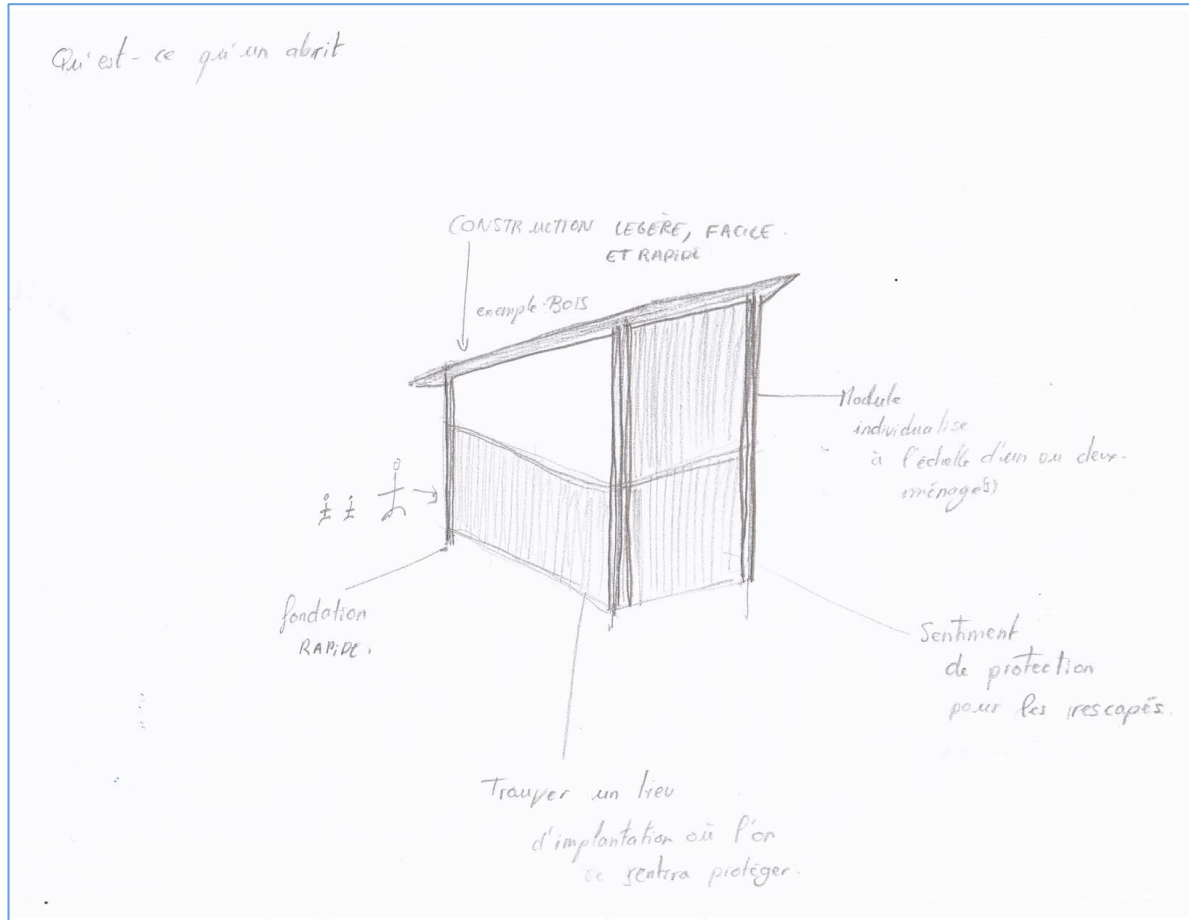 Qu'est-ce qu'un abrit
CONSTRUCTION LEGÈRE, FACILE
ET RAPIDE
exemple-BOIS
Module
individualise
à l'échelle d'un ou deux
ménage(s)
fondation
RAPIDE.
Sentiment
de protection
pour les rescapés.
Trouver un lieu
d'implantation où l'on
se sentira protéger.